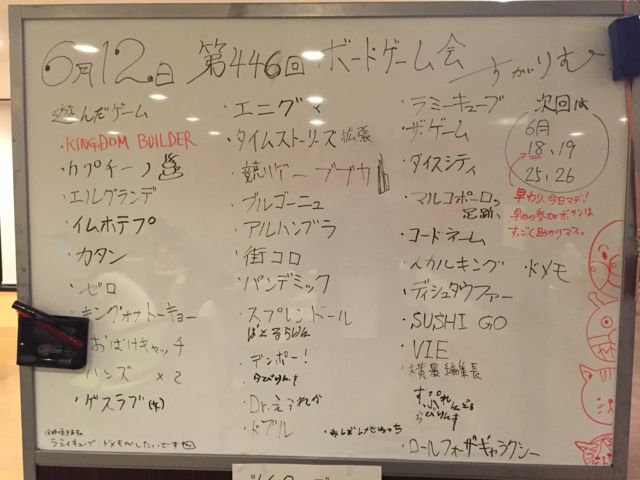 6月12日 第446回 ボードゲーム会
すがりむ
遊んだゲーム
・KINGDOM BUILDER
・カプチーノ
・エルグランデ
・イムホテプ
・カタン
・ゼロ
キングオブトーキョー
おばけキャッチ
ハンズ ×2
・ゲスラブ
ラミィキューブ・ドメモがしたいです
・エニグマ
・タイムストーリーズ 拡張
・ブルゴーニュ
・アルハンブラ
・街コロ
・パンデミック
・スプレンドール
ばとるらいん
・デンポー!
・らびりんす
・Dr.えうれか
・ドブル
・ラミーキューブ
・ザ・ゲーム
・ダイスシティ
・マルコポーロの
足跡
・コードネーム
・スカルキング
・ディシュタウファー
・SUSHI GO
・VIE
・横暴編集長
・ロールフォーザギャラクシー
・ドメモ
次回は
6月
18、19
25、26
早わり、今日マデ!
早めの参加ボタンは
すっごく助かりマス。